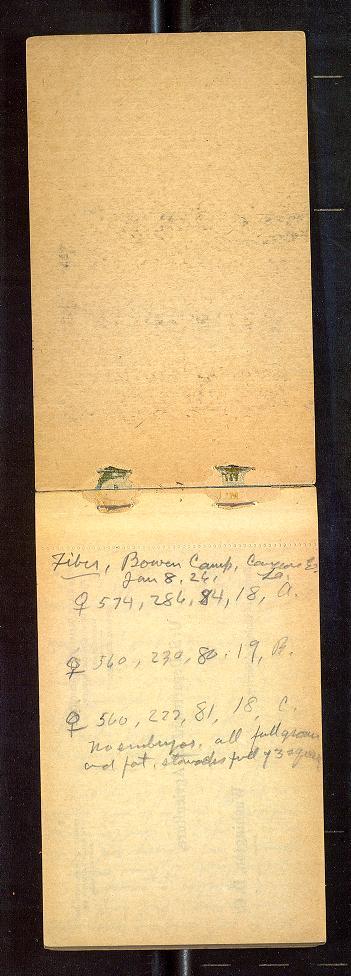 Fiber, Bowen Camp, 
Jan 8, 26, La.
♀ 574, 286, 84, 18, A.
♀ 560, 270, 80, 19, B.
♀ 560, 277, 81, 18, C.
No embryos, all full grown
and fat, stomachs full of 3 square